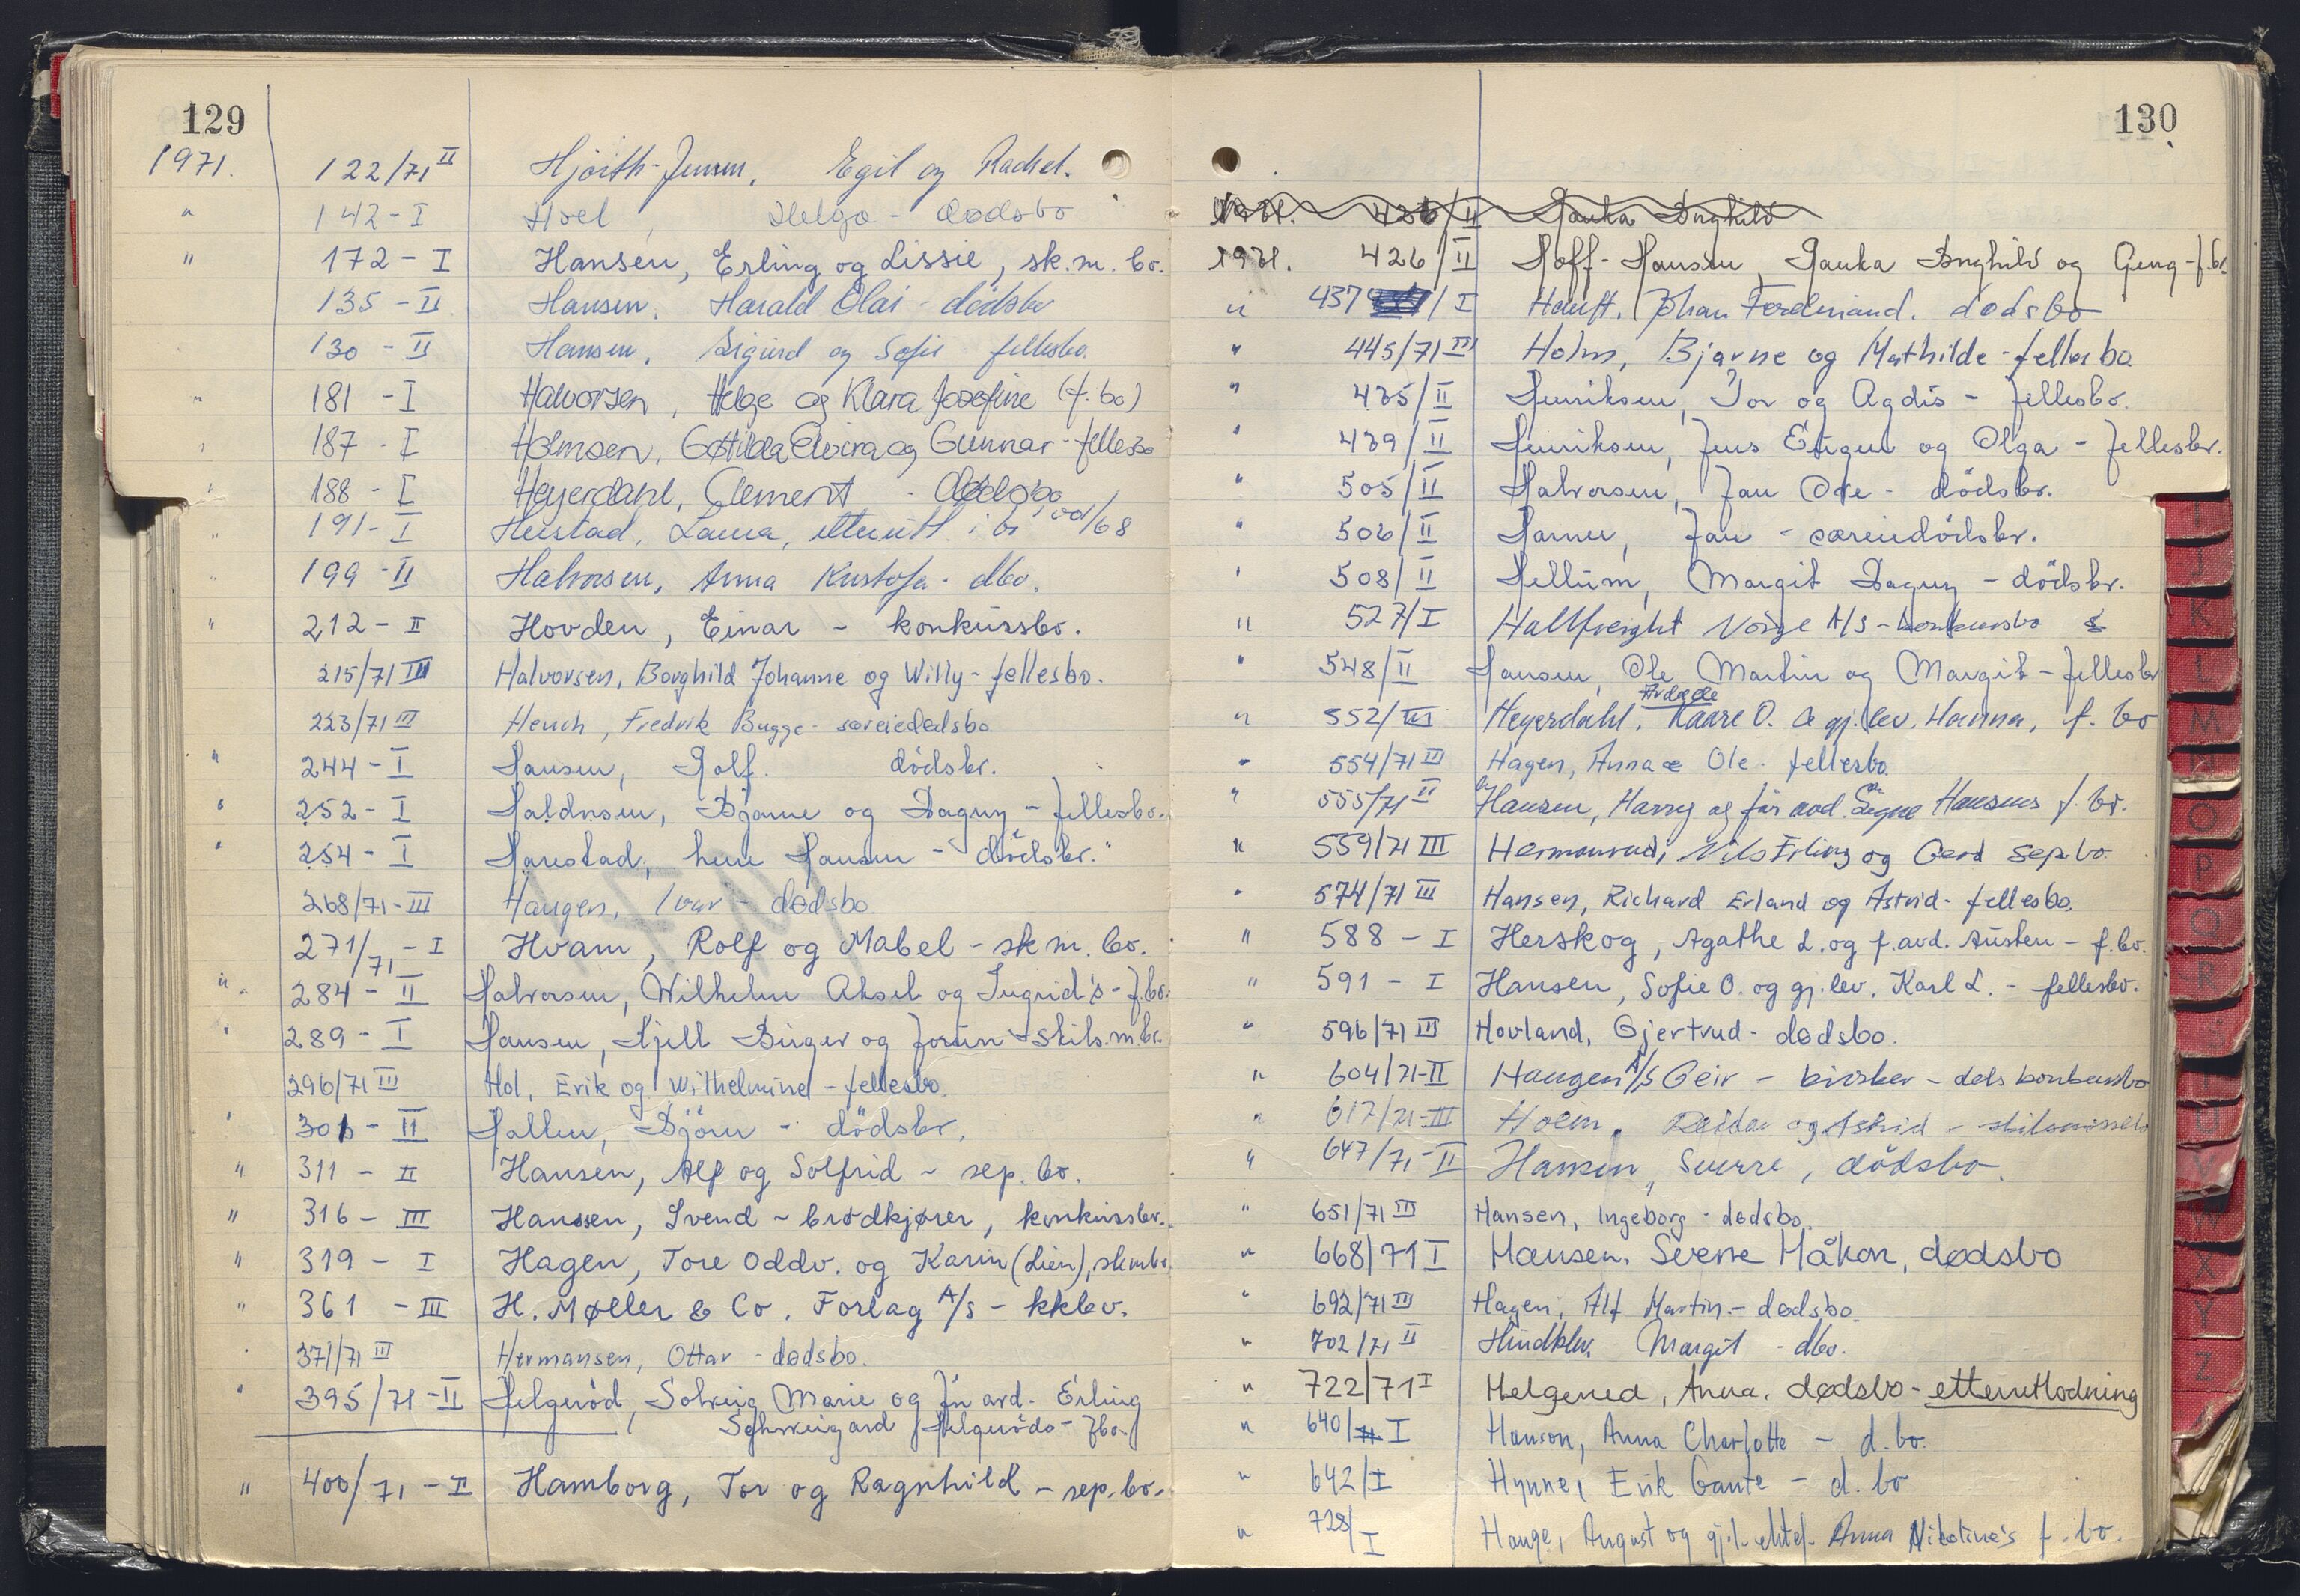 129
1971. 122/71 II Hjorth-Jensen, Egil og Rachel.
" 142 - I Hoel, Helga - dødsbo
" 172 - I Hansen, Erling og Lissie, sk.m.bo.
135 - II Hansen, Harald Olai - dødsbo
130 - II Hansen, Sigurd og Sofie fellesbo.
" 181 - I Halvorsen, Helge og Klara Josefine (f.bo)
" 187 - I Holmsen, Elvira og Gunnar - fellesbo
" 188 - I Heyerdahl, Clement - dødsbo
" 191 - I Laura, i bo /68
" 199 - II Halvorsen, Anna - dbo.
" 212 - II Hovden, Einar - konkursbo.
215/71 III Halvorsen, Borghild Johanne og Willy - fellesbo.
223/71 III Heuch, Fredrik Bugge - særeiedødsbo
" 244 - I Hansen, Rolf. dödsbo.
" 252 - I Haldorsen, Bjarne og Dagny - fellesbo.
" 254 - I Harestad, Hansen - dödsbo."
268/71 - III Haugen, Ivar - dødsbo.
271/71 - I Hvam, Rolf og Mabel - sk m. bo.
" 284 - II Halvorsen, Wilhelm Aksel og Ingrid's - f.bo.
" 289 - I Hansen, Kjell Birger og Jorun - skils.m.bo.
296/71 III Hol, Erik og Wilhelmine - fellesbo.
" 301 - II Hallen, Björn - dödsbo.
" 311 - II Hansen, Alf og Solfrid - sep. bo.
" 316 - III Hanssen, Svend - brødkjører, konkursbo.
" 319 - I Hagen, Tore Oddv. og Karin (Lien), skmbo.
" 361 - III H. Møller & Co. Forlag A/S - kkbo.
" 371/71 III Hermansen, Ottar - dødsbo.
" 395/71 - II Helgeröd, Solveig Marie og før avd. Erling
Schweigaard Helgeröds - fbo.
" 400/71 - II Hamborg, Tor og Ragnhild - sep.bo.
130
1971. II Borghild
1971. 426/II Hoff-Hansen, Borghild og Georg - f.bo.
" 437/I Johan Ferdinand. dødsbo
" 445/71 III Holm, Bjarne og Mathilde - fellesbo
" 435/II Henriksen, Tor og Agdis - fellesbo.
" 439/II Henriksen, Jens Eugen og Olga - fellesbo.
" 505/II Halvorsen, Jan Ove - dödsbo.
" 506/II Jan - særeiedödsbo.
" 508/II Hellum, Margit Dagny - dödsbo.
" 527/I Hallfreight Norge A/S - konkursbo
" 548/II Hansen, Ole Martin og Margit - fellesbo
Ardelle
" 552/III Heyerdahl, Kaare O. & gj.lev. Hanna, f. bo
" 554/71 III Hagen, Anna & Ole - fellesbo.
" 555/71 II Hansen, Harry og før avd. Signe Hansens f. bo.
" 559/71 III Hermanrud, Nils Erling og Gerd sep.bo.
" 574/71 III Hansen, Richard Erland og Astrid - fellesbo.
" 588 - I Herskog, Agathe L. og f.avd. Austen - f.bo.
" 591 - I Hansen, Sofie O. og gj.lev. Karl L. - fellesbo.
" 596/71 III Hovland, Gjertrud - dødsbo.
" 604/71 - II Haugen A/S Geir - - dets konkursbo
" 617/71 - III Holm, Reidar og Astrid - skilsmissebo
" 647/71 - II Hansen, Sverre, dödsbo.
" 651/71 III Hansen, Ingeborg - dødsbo.
" 668/71 I Hansen, Sverre Håkon, dødsbo
" 692/71 III Hagen, Alf Martin - dødsbo.
" 702/71 II Margit - dbo.
" 722/71 I Helgerud, Anna. dødsbo - etterutlodning
" 640/71 I Hanson, Anna Charlotte - d. bo.
" 642/I Hynne, Erik Gaute - d. bo
" 728/I Hauge, August og gj.l. ektef. Anna Nikoline's f. bo.
I
J
K
L
M
N
O
P
Q
R
U
V
W
X
Y
Z